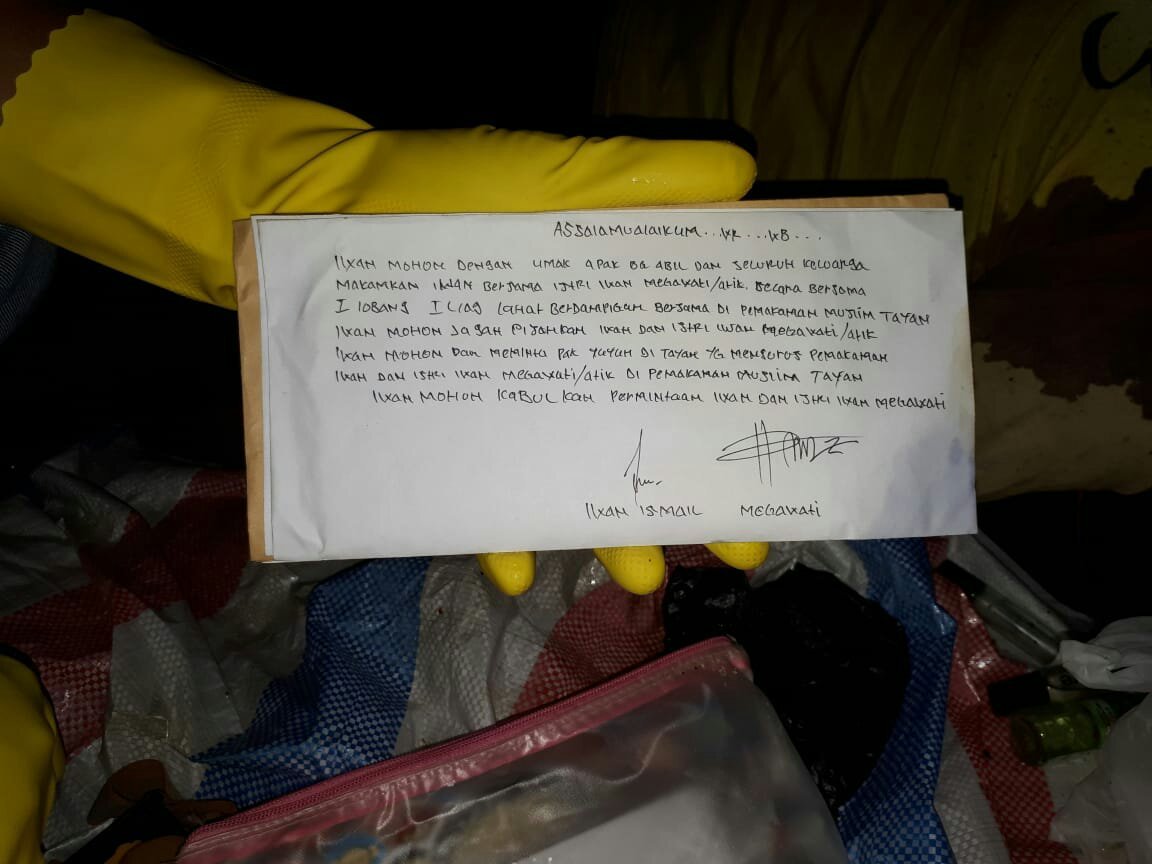 ASSALAMUALAIKUM...WR...WB...
IWAN MOHON DENGAN UMAK APAK BA ABIL DAN SELURUH KELUARGA
MAKAMKAN IWAN BERSAMA ISTRI IWAN MEGAWATI/ATIK. SECARA BERSAMA
I LOBANG I LIANG LAHAT BERDAMPIGAN BERSAMA DI PEMAKAMAN MUSLIM TAYAN
IWAN MOHON JAGAN PISAHKAN IWAN DAN ISTRI IWAN MEGAWATI/ATIK
IWAN MOHON DAN MEMINTA PAK YUYUN DI TAYAN YG MENGURUS PEMAKAMAN
IWAN DAN ISTRI IWAN MEGAWATI/ATIK DI PEMAKAMAN MUSLIM TAYAN
IWAN MOHON KABULKAN PERMINTAAN IWAN DAN ISTRI IWAN MEGAWATI
IWAN ISMAIL MEGAWATI